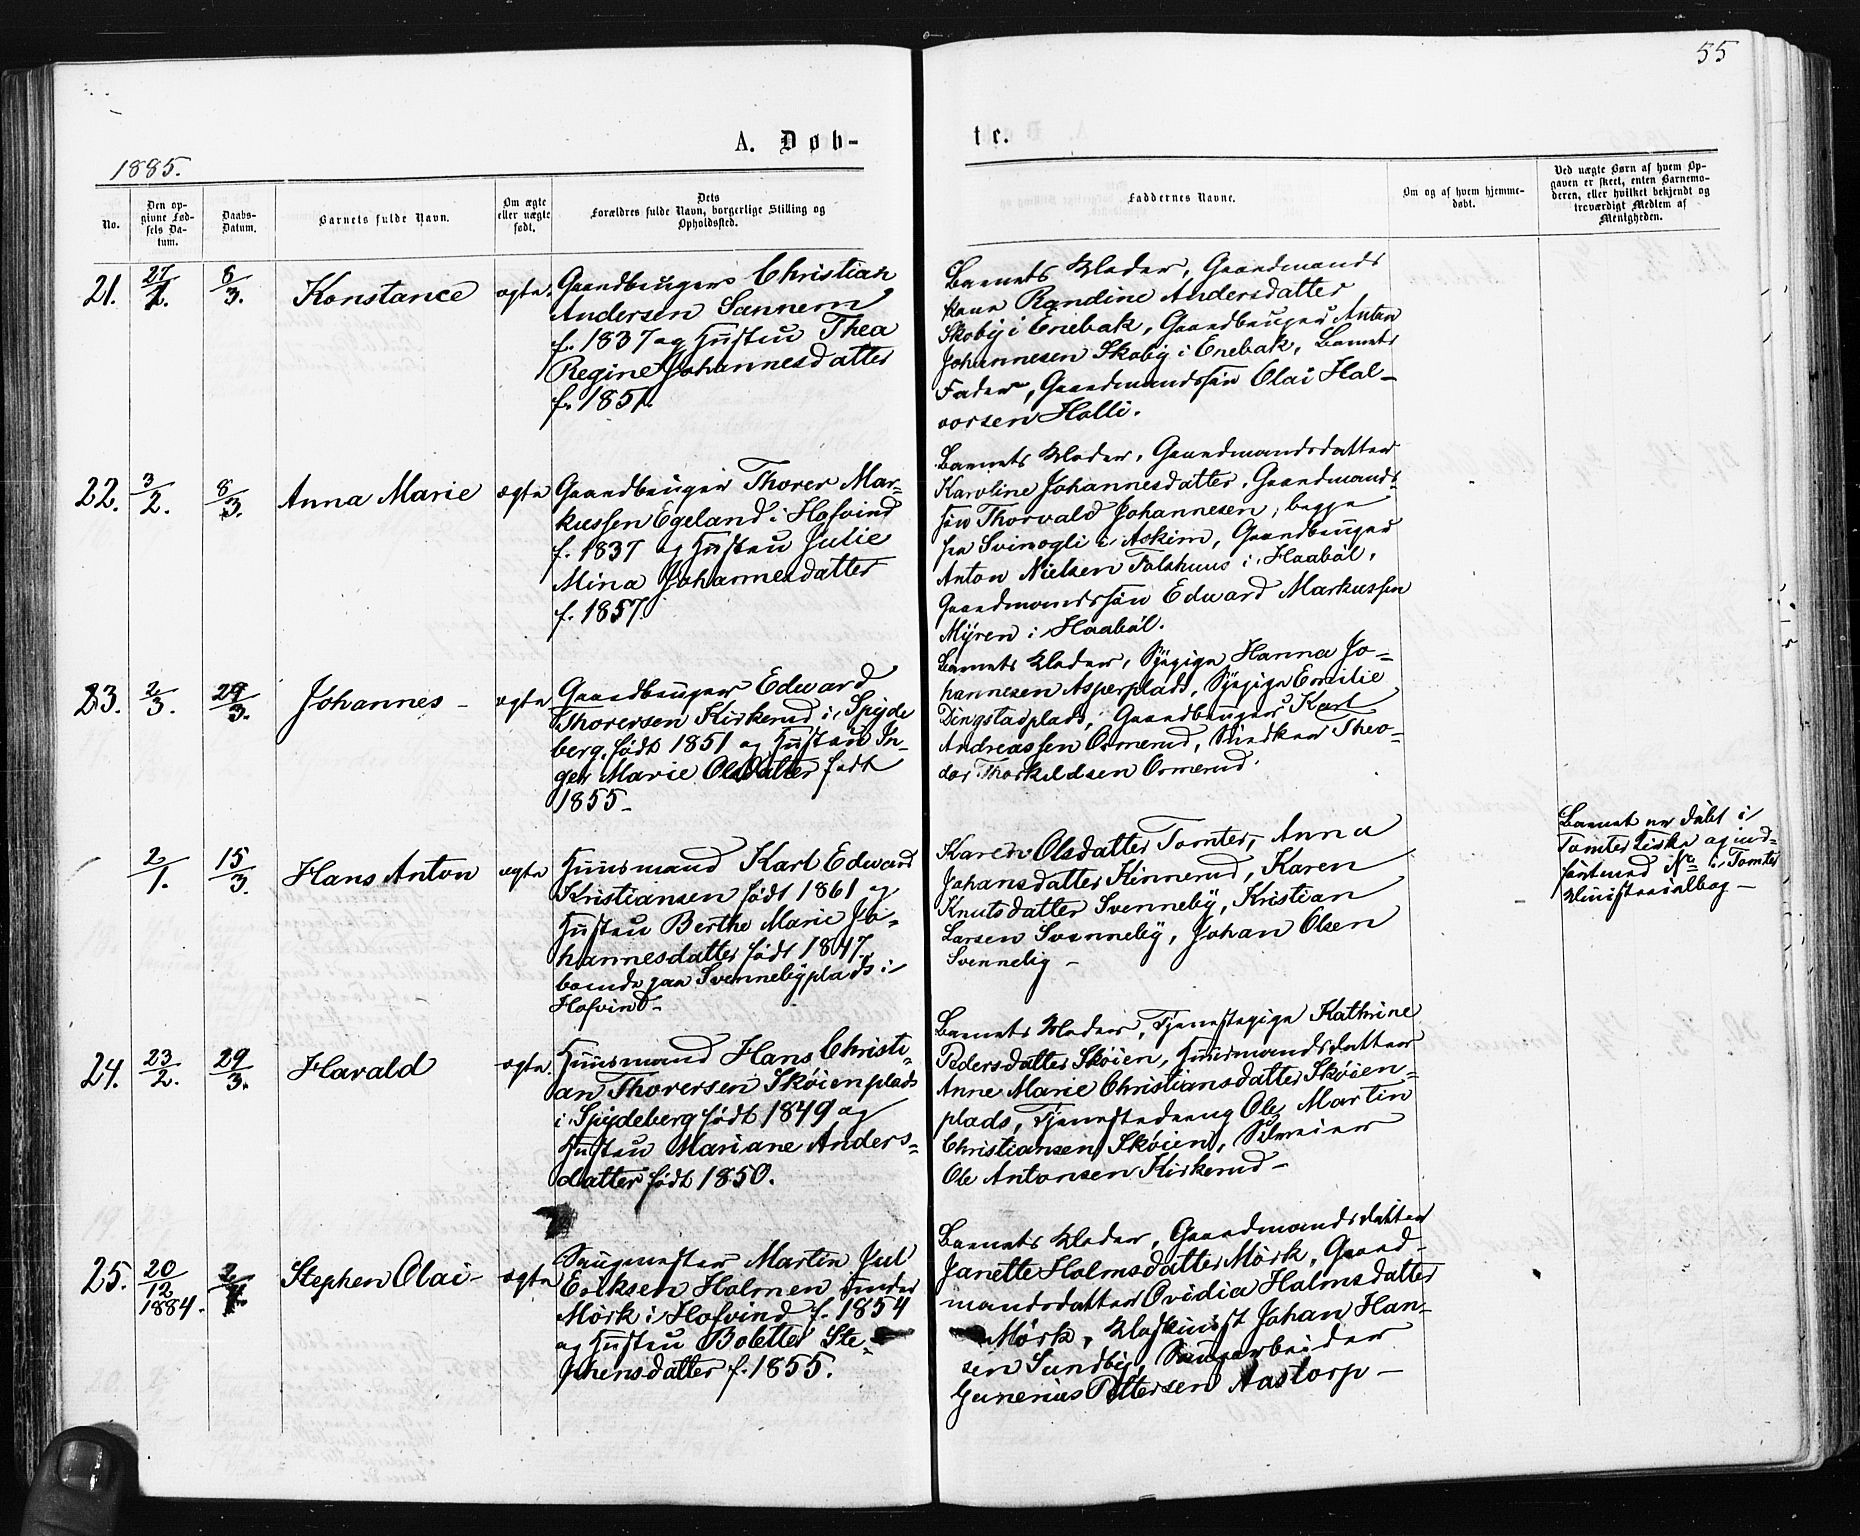 55
A. Døb-
te.
1885.
No.
Den op-
givne Fød-
sels Da-
tum.
Daabs-
Datum.
Barnets fulde Navn.
Om ægte
eller uægte
født.
Dets
Forældres fulde Navn, borgerlige Stilling og
Opholdssted.
Faddernes Navne.
Om og af hvem hjemme-
døbt.
Ved uægte Børn af hvem Op-
gaven er skeet, enten Barnemo-
deren, eller hvilket bekjendt og
troværdigt Medlem af
Menigheden.
21.
27/1.
8/3.
Konstance
ægte.
Gaardbruger Christian
Andersen Sannem
f. 1837 og Hustru Thea
Regine Johannesdatter
f. 1851.
Barnets Moder, Gaardmands
kone Randine Andersdatter
Skoby i Enebak, Gaardbruger Anton
Johannesen Skoby i Enebak, Barnets
Fader, Gaardmandssøn Olai Hal-
vorsen Holli.
22.
3/2.
8/3.
Anna Marie
ægte
Gaardbruger Thorer Mar-
kussen Egeland i Hofvind
f. 1837 og Hustru Julie
Mina Johannesdatter
f. 1857.
Barnets Moder, Gaardmandsdatter
Karoline Johannesdatter, Gaardmands-
søn Thorvald Johannesen, begge
fra Svinogli i Askim, Gaardbruger
Anton Nielsen Folshuus i Haabøl,
Gaardmandssøn Edward Markussen
Mÿren i Haabøl.
23.
2/3.
29/3.
Johannes -
ægte
Gaardbruger Edward
Thorersen Kirkerud i Spyde
berg, født 1851 og Hustru In-
ger Marie Olsdatter født
1855 -
Barnets Moder, Sypige Hanna Jo-
hannesen Asperplads, Sypige Emilie
Dingstadplads, Gaardbruger Karl
Andreassen Ormerud, Snedker Theo-
dor Thorkildsen Ormerud.
2/1.
15/3.
Hans Anton
ægte
Huusmand Karl Edward
Kristiansen født 1861 og
Hustru Berthe Marie Jo-
hannesdatter født 1847,
boende paa Svennebyplads i
Hofvind -
Karen Olsdatter Tomter, Anna
Johansdatter Kinnerud, Karen
Knutsdatter Svenneby, Kristian
Larsen Svenneby, Johan Olsen
Svenneby -
Barnet er døbt i
Tomter Kirke og ind-
ført med No i Tomter
Ministerialbog -
24.
23/2.
29/3.
Harald
ægte.
Huusmand Hans Christi-
an Thorersen Skøienplads
i Spydeberg født 1849 og
Hustru Mariane Anders-
datter født 1850.
Barnets Moder, Tjenestepige Kathrine
Pedersdatter Skøien, Huusmandsdatter
Anne Marie Christiansdatter Skøien-
plads, Tjenestedreng Ole Martin
Christiansen Skøien,
Ole Antonsen Kirkerud -
25.
20/12
1884.
Stephen Olai -
ægte
Saugmester Martin Jul
Eriksen Holmen under
Mørk i Hofvind f. 1854
og Hustru Bolette Ste-
phensdatter f. 1855.
Barnets Moder, Gaardmandsdatter
Janette Holmsdatter Mørk, Gaard-
mandsdatter Ovidia Holmsdatter
Mørk, Maskinist Johan Han-
sen Sundby, Saugarbeider
Gunerius Pettersen Aastorp -